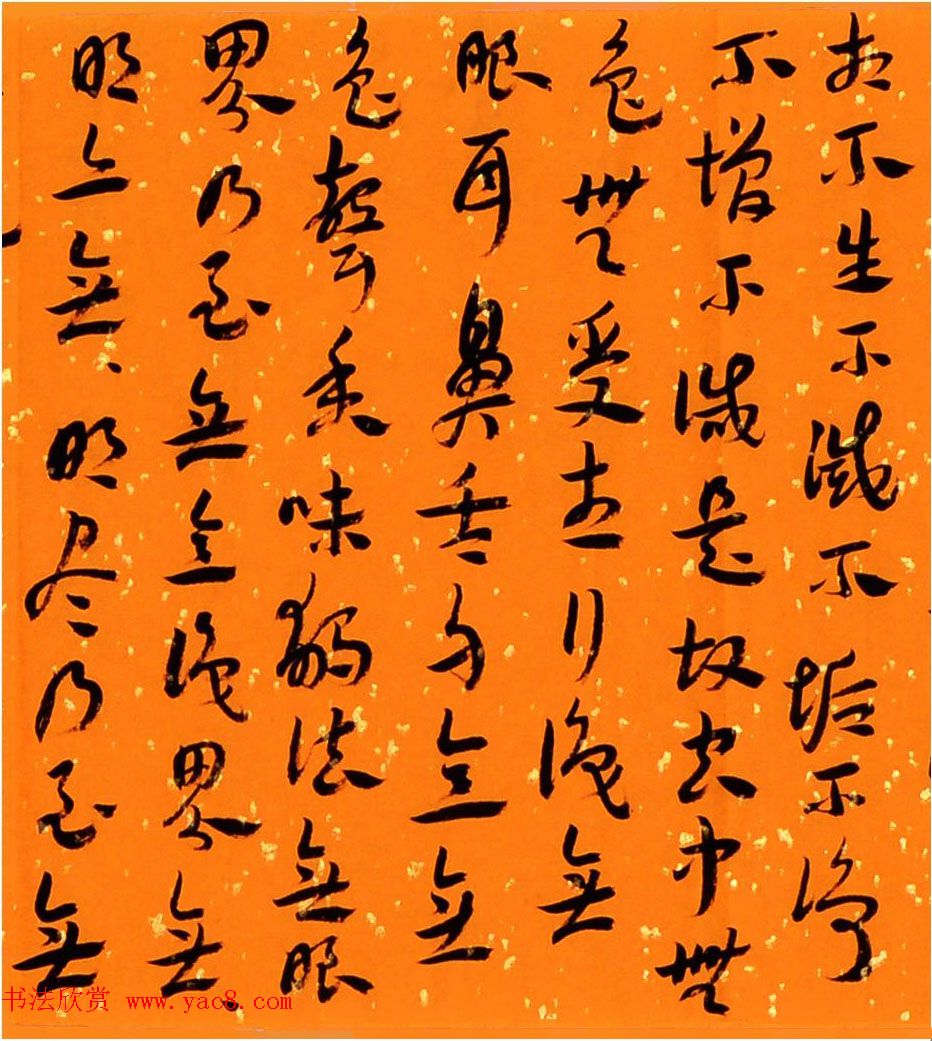 相不生不滅不垢不淨
不增不減是故空中無
色無受想行識無
眼耳鼻舌身意無
色聲香味觸法無眼
界乃至無意識界無
明亦無、明尽乃至無
书法欣赏 www.yac8.com